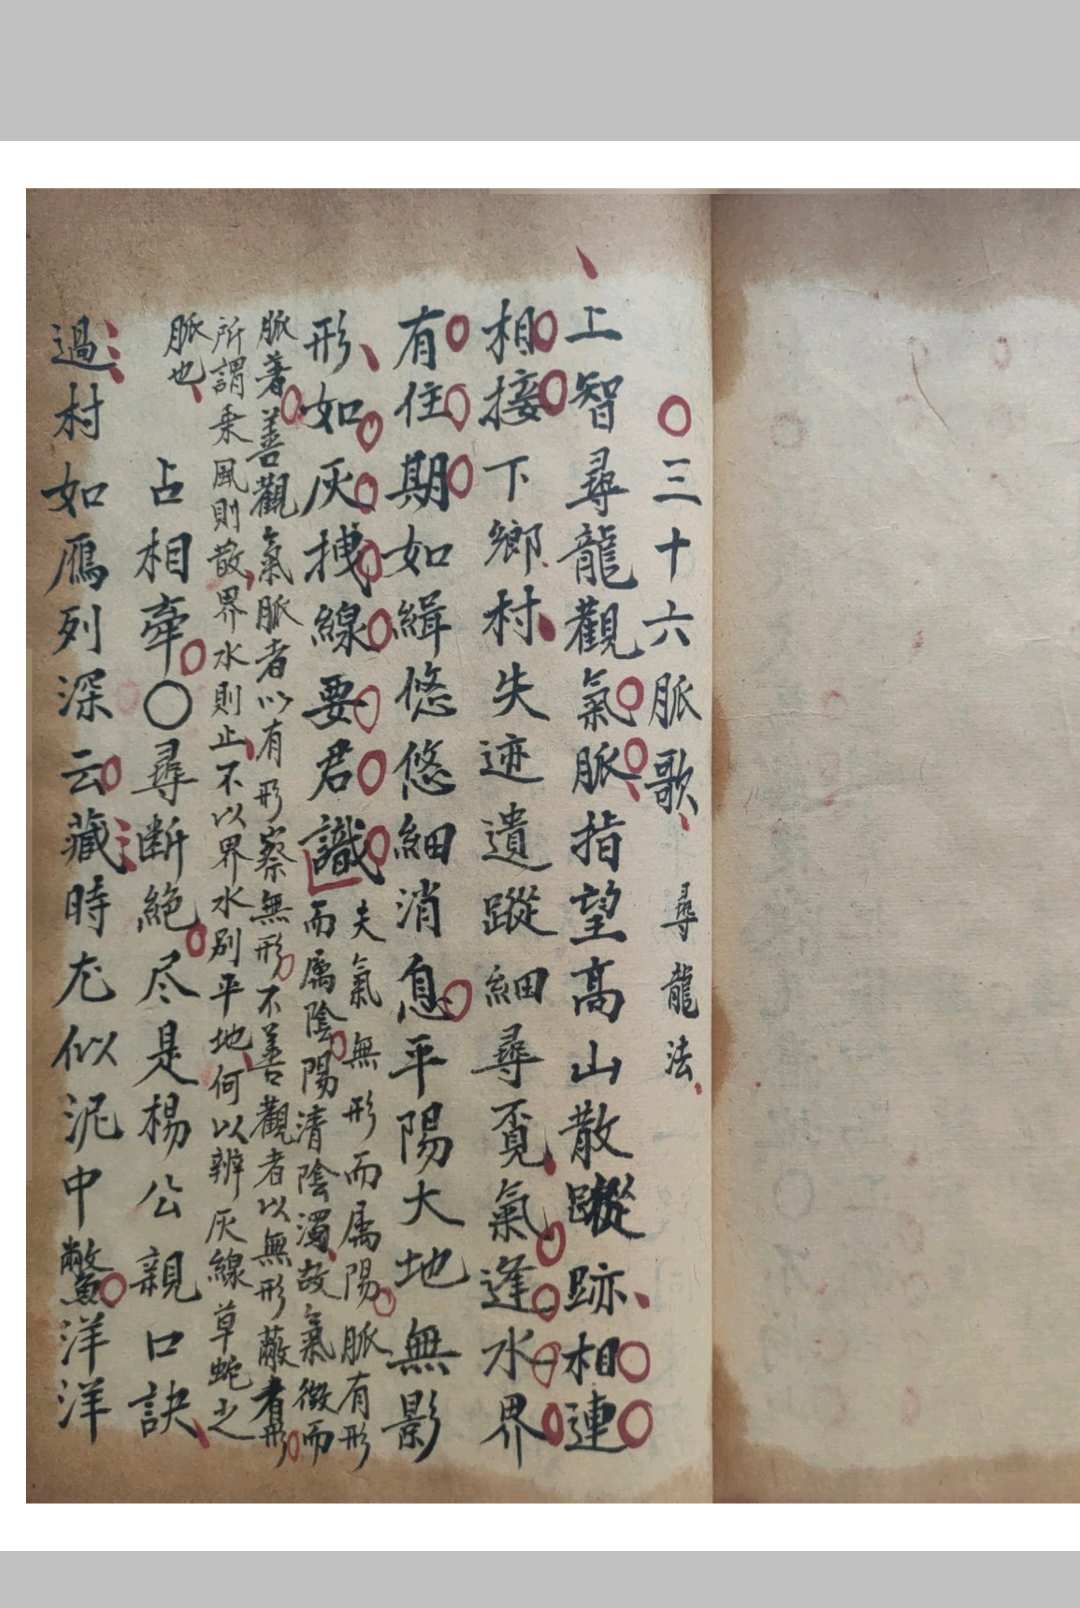 ○三十六脈歌 尋龍法
上智尋龍觀氣脈指望高山散蹤跡相連
相接下鄉村失迹遺蹤細尋覓氣逢水界
有住期如緝悠悠細消息平陽大地無影
形如灰拽線要君識夫氣無形而属陽脈有形
而属陰陽清陰濁故氣微而
脈著善觀氣脈者以有形察無形不善觀者以無形蔽者形
所謂乘風則散界水則止不以界水别平地何以辨灰線草蛇之
脈也
占相牽○尋断絕尽是楊公親口訣
過村如鴈列深云藏時尤似泥中鱉洋洋